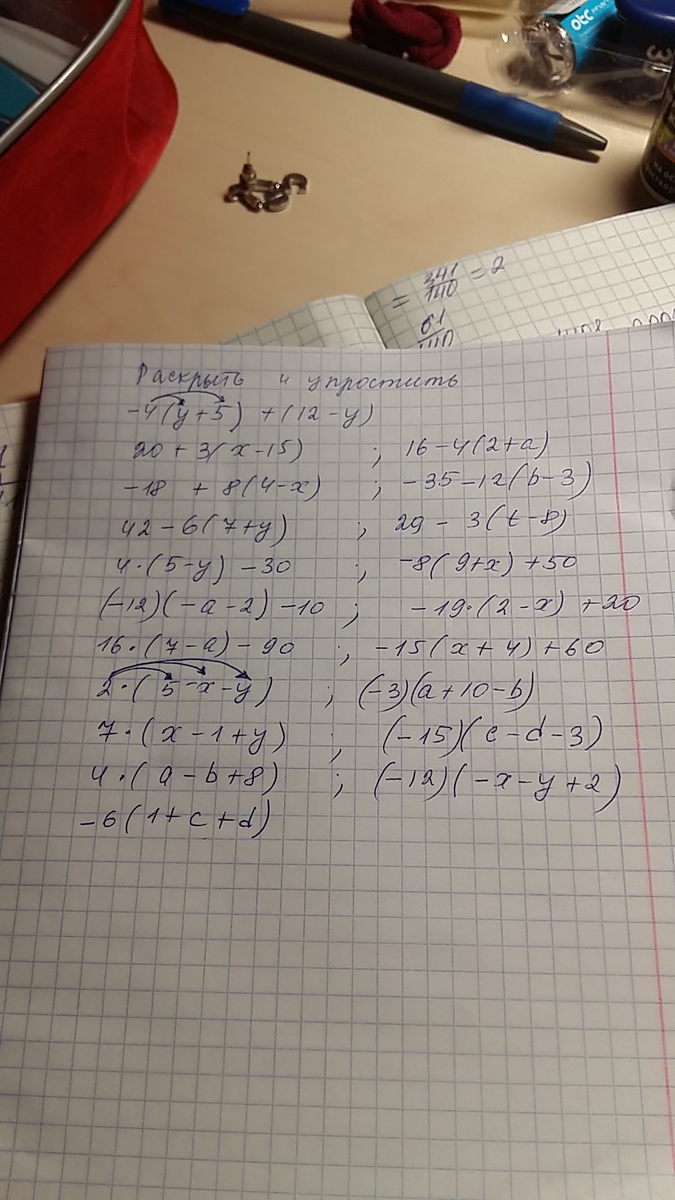 otc
= 341/140 = 2
61/140
Раскрыть и упростить
-4(y+5) + (12-y)
20 + 3(x-15) ; 16-4(2+a)
-18 + 8(4-x) ; -35-12(b-3)
42-6(7+y) ; 29 - 3(t-8)
4·(5-y) -30 ; -8(9+x) +50
(-12)(-a-2) -10 ; -19·(2-x) +20
16·(7-a) - 90 ; -15(x+4)+60
2·(5-x-y) ; (-3)(a+10-b)
7·(x-1+y) ; (-15)(c-d-3)
4·(a-b+8) ; (-12)(-x-y+2)
-6(1+c+d)